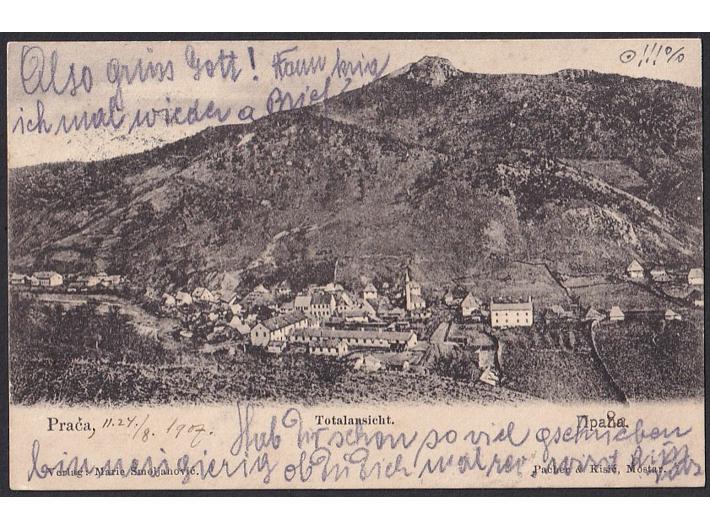 Also grüss Gott! Kann krieg
ich mal wieder a Brief!
Prača, 11.24./8. 1907.
Totalansicht.
Прача.
Hab Dir schon so viel geschrieben
bin neugierig ob Du Dich mal rev
Verlag: Marie Smoljanović.
Pacher & Kisić, Mostar.